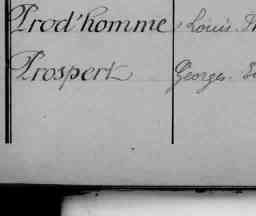 Prod'homme, Louis.
Prospert Georges.